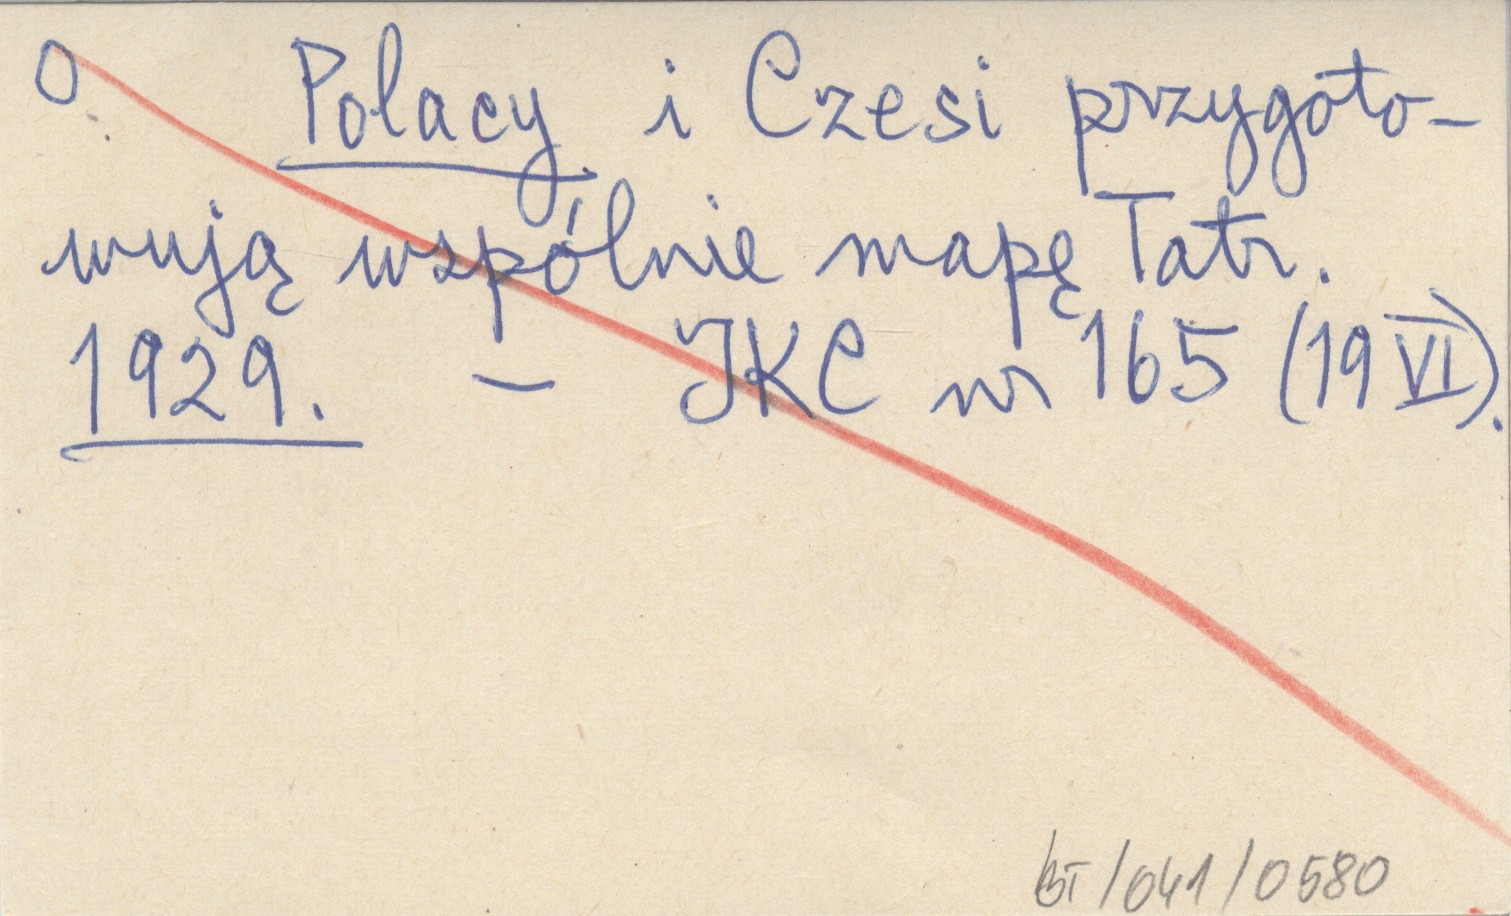 O Polacy i Czesi przygoto-
wują wspólnie mapę Tatr.
1929. – IKC nr 165 (19 VI).
BT/041/0580